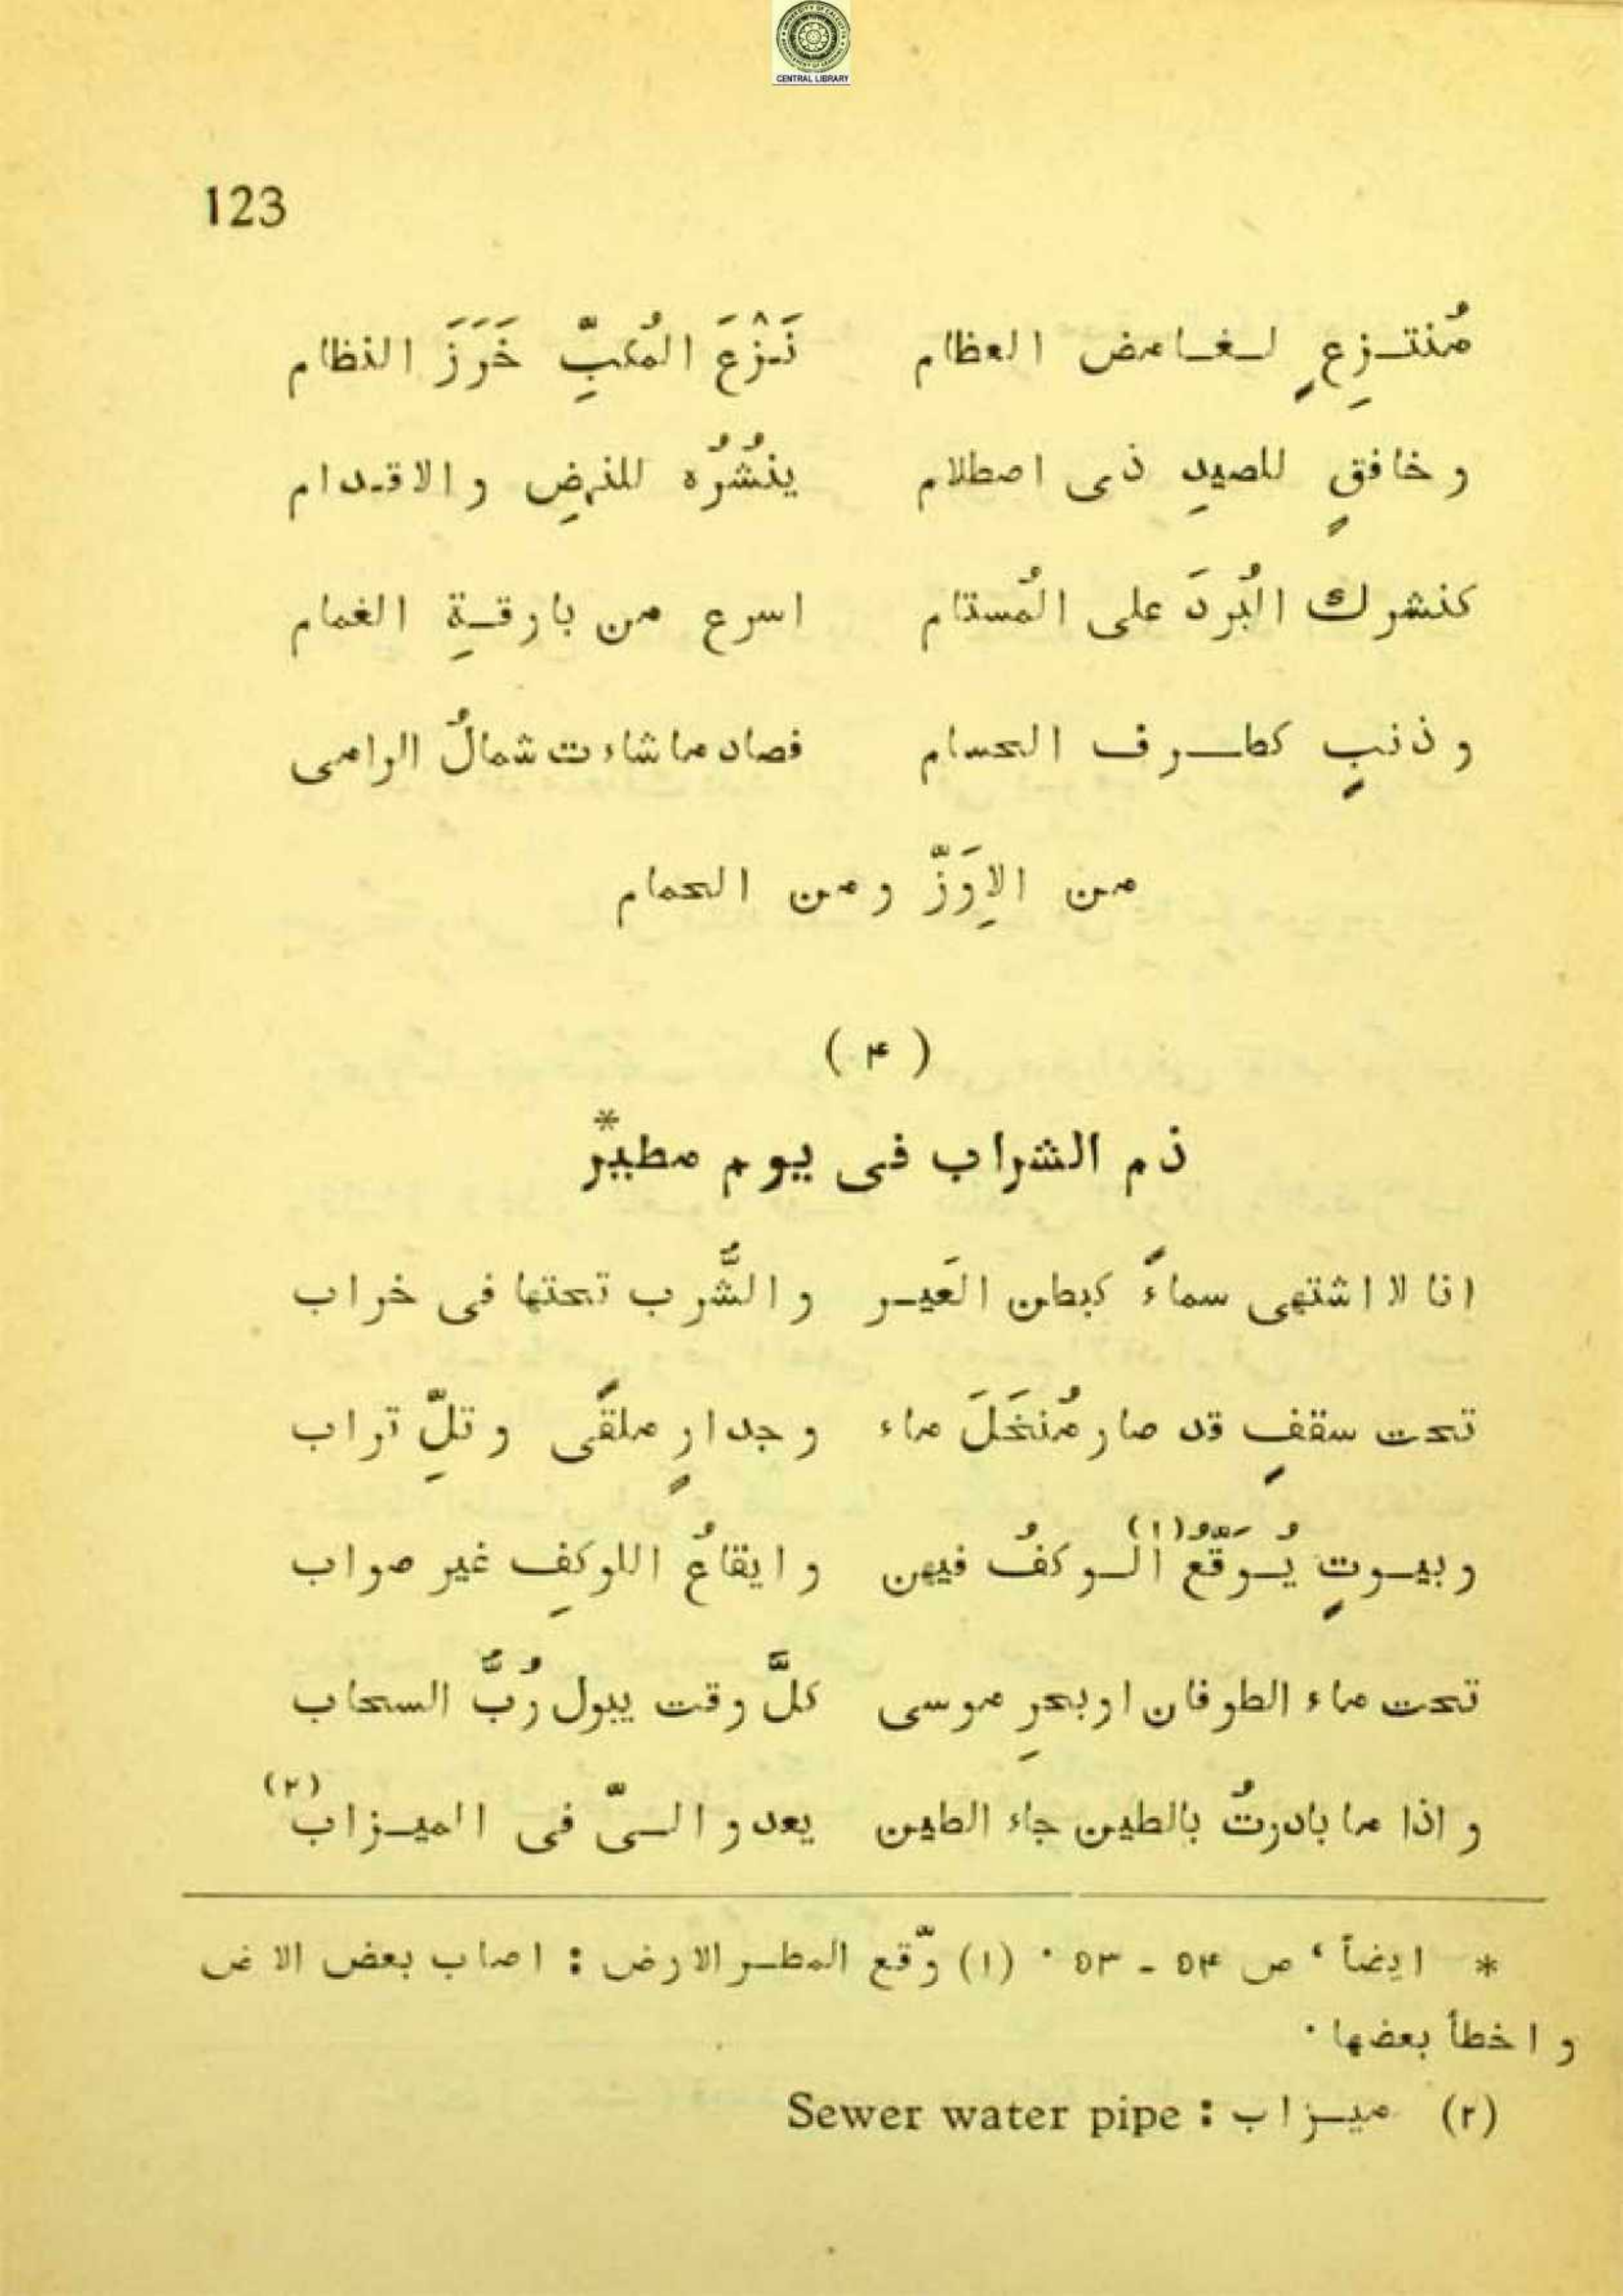 UNIVERSITY OF CALCUTTA
CENTRAL LIBRARY
123
مُنتـزِعٍ لـغـامض العظام نَـزْعَ المُكبِّ خَرَزَ النظام
و خافقٍ للصيدِ ذى اصطلام ينْشُرُه للنهضِ و الاقـدام
كنشرك البُردَ على المُستام اسرع من بارقـةِ الغمام
و ذنبٍ كطـرف الحسام فصاد ما شاءت شمالُ الرامى
من الاِوَزّ و من الحمام
( ۴ )
ذم الشراب فى يوم مطيرٌ*
انا لا اشتهى سماءً كبطن العَيـر و الشَّرب تحتها فى خراب
تحت سقفٍ قد صار مُنخَلَ ماء و جدارٍ ملقًى و تلِّ تراب
و بيـوتٍ يُـوَقّعُ (١) الـوكفُ فيهن و ايقاعُ اللوكفِ غير صواب
تحت ماء الطوفان او بحرِ موسى كلَّ وقت يبول رُبَّ السحاب
و اذا ما بادرتُ بالطين جاء الطين يعدو الـىّ فى الميـزاب (٢)
* ايضاً ‘ ص ۵۴ - ۵۳ ٠ (١) وّقع المطـر الارض : اصاب بعض الا ض
و اخطأ بعضها ٠
(٢) ميـزاب : Sewer water pipe